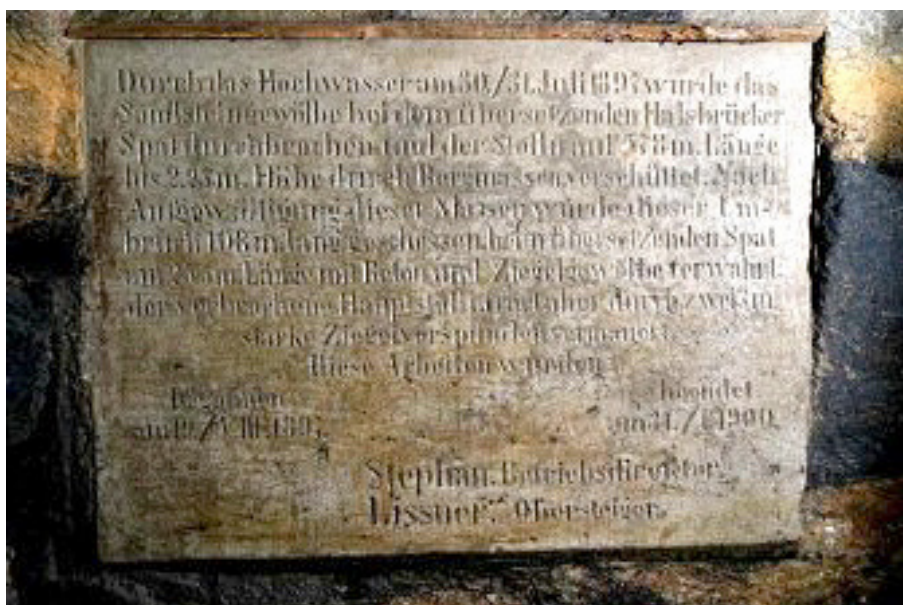 Durch das Hochwasser am 30/31. Juli 1897 wurde das
Sandsteingewölbe bei dem übersetzenden Halsbrücker
Spat durchbrochen und der Stolln auf 578 m. Länge
bis 2.25 m. Höhe durch Bergmassen verschüttet. Nach
Aufgewältigung dieser Massen wurde dieser Um-
bruch 108 m. lang geschossen, beim übersetzenden Spat
auf m. Länge mit Beton und Ziegelgewölbe verwahrt,
der verbrochene Hauptstolln aber durch zwei m
starke Ziegelverspünden vermauert.
Diese Arbeiten wurden
begonnen beendet
am 19./VIII. 1897. am 31./1.1900.
Stephan, Betriebsdirektor.
Lissner, Obersteiger.